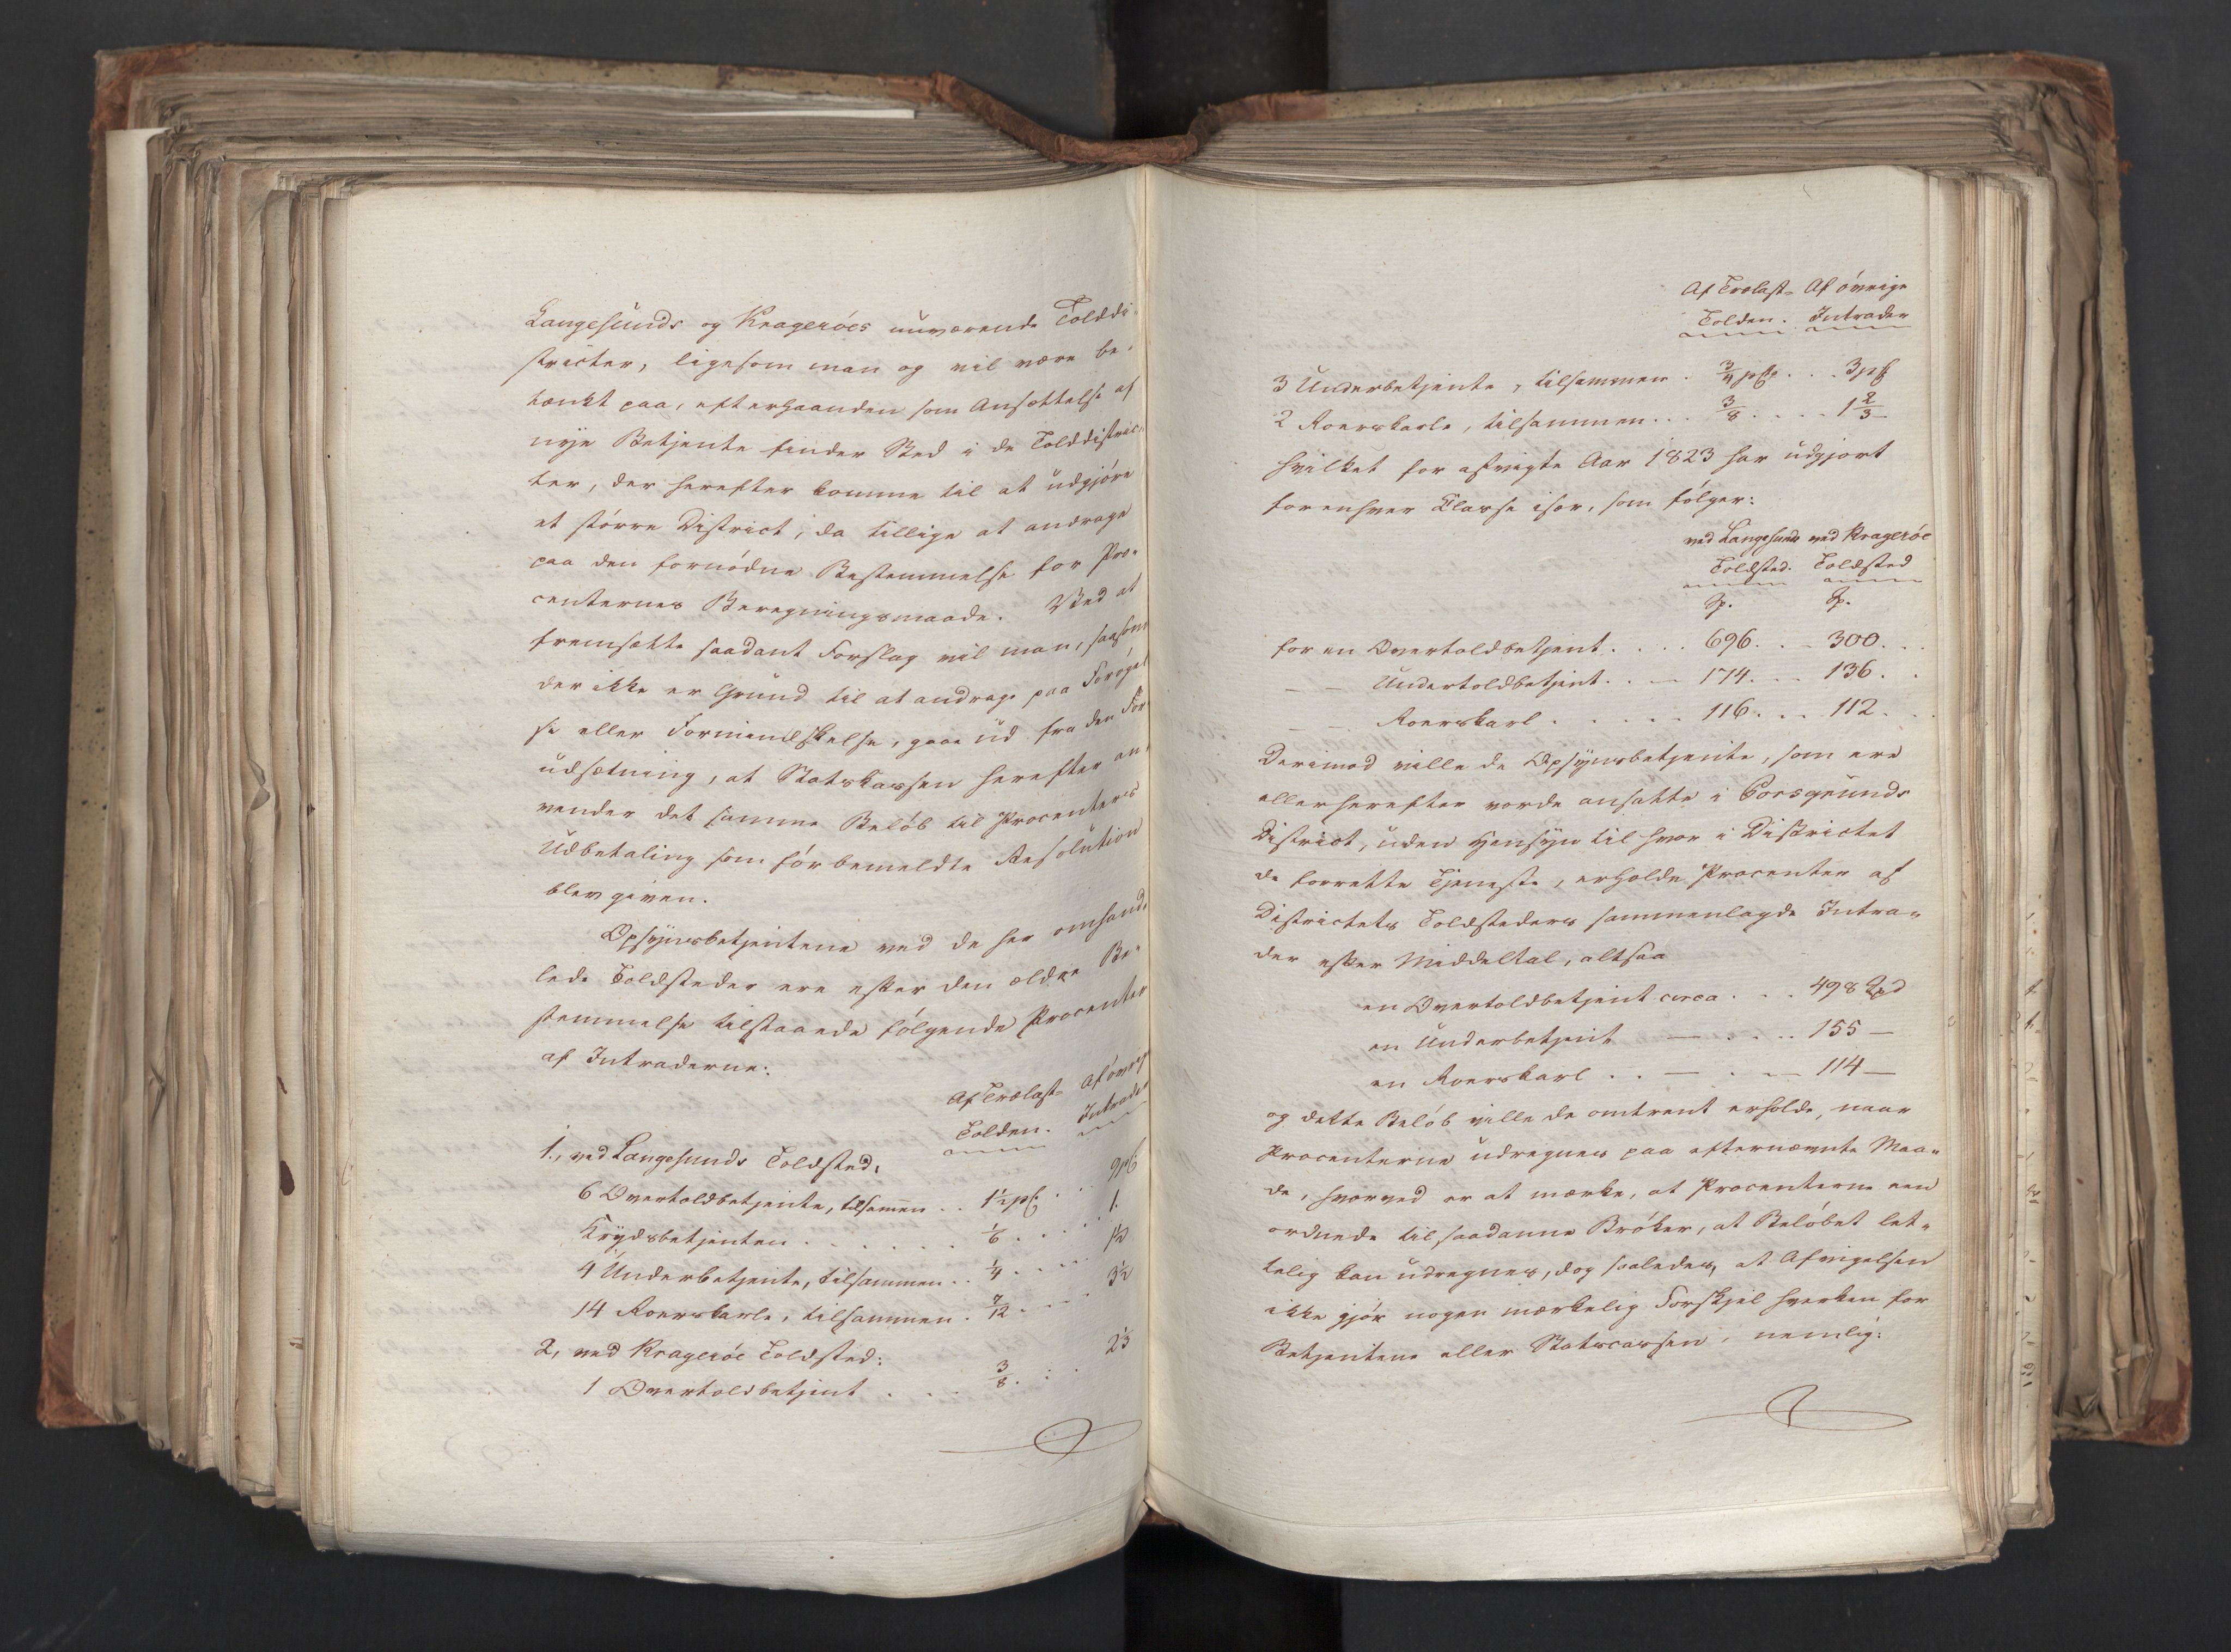 Langesunds og Kragerøes nuværende Tolddi-
stricter, ligesom man og vil være be-
tænkt paa, efterhaanden som Ansættelse af
nye Betjente finder Sted i de Tolddistric-
ter, der herefter komme til at udgjøre
et større District, da tillige at andrage
paa den fornødne Bestemmelse for Pro-
centernes Beregningsmaade. Ved at
fremsætte saadant Forslag vil man, saasom
der ikke er Grund til at andrage paa Forøgel
se eller Formindskelse, gaae ud fra den For
udsætning, at Statskassen herefter an-
vender det samme Beløb til Procenters
Udbetaling som før bemeldte Resolution
blev given.
Opsynsbetjentene ved de her omhand-
lede Toldsteder ere efter den ældre Be-
stemmelse tilstaaede følgende Procenter
af Intraderne:
Af Trælast- Af øvrige
Tolden. Intrader
1., ved Langesunds Toldsted,
6 Overtoldbetjente, tilsamen . . 1½ pC . . 9 pC
Krydsbetjenten . . . . . . ⅙ . . . 1.
4 Underbetjente, tilsammen . . ¼ . . . 1½
14 Roerskarle, tilsammen . 7/12 . . . 3½
2, ved Kragerøe Toldsted:
1 Overtoldbetjent . . . 3/8 . : . 2⅓
Af Trælast- Af øvrige
Tolden. Intrader
3 Underbetjente, tilsammen . ¾ pC . . . 3 pC
2 Roerskarle, tilsammen . . . 3/8 . . . . 1 2/3
hvilket for afvigte Aar 1823 har udgjort
for enhver Classe især, som følger:
ved Langesunds ved Kragerøe
Toldsted. Toldsted
Sp. Sp.
for en Overtoldbetjent . . . . 696 . . - 300 . . .
— — Undertoldbetjent . . — 174 . . - 136 . .
— Roerskarl . . . . . 116 . . . 112 . .
Derimod ville de Opsynsbetjente, som ere
eller herefter vorde ansatte i Porsgrunds
District, uden Hensyn til hvor i Districtet
de forrette Tjeneste, erholde Procenter af
Districtets Toldsteders sammenlagde Intra-
der efter Middeltal, altsaa
en Overtoldbetjent circa . . . 498 Spd
en Underbetjent — . . . 155 —
en Roerskarl . . — . — 114 —
og dette Beløb ville de omtrent erholde, naar
Procenterne udregnes paa efternævnte Maa-
de, hvorved er at mærke, at Procenterne ere
ordnede til saadanne Brøker, at Beløbet let-
telig kan udregnes, dog saaledes, at Afvigelsen
ikke gjør nogen mærkelig Forskjel hverken for
Betjentene eller Statscassen, nemlig: